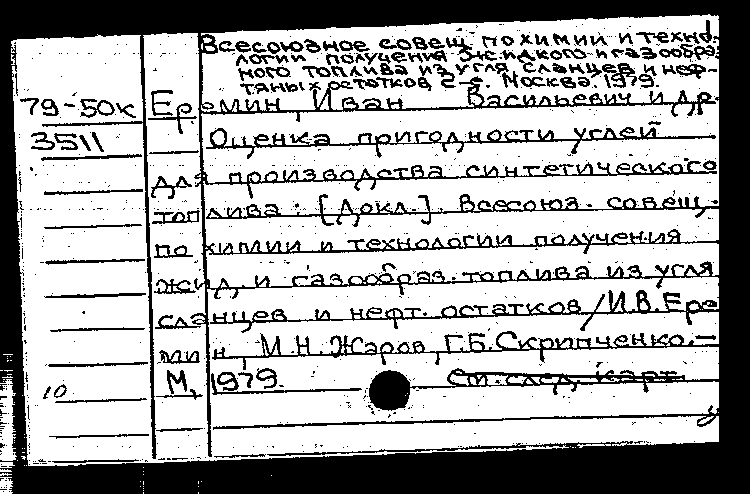 Всесоюзное совещ. по химии и техно-
логии получения жидкого и газообраз
ного топлива из угля сланцев и неф-
тяных остатков Москва. 1979.
79-50к Еремин, Иван Васильевич и др.
3511 Оценка пригодности углей
для производства синтетического
топлива: [Докл.]. Всесоюз. совещ.
по химии и технологии получения
жид. и газообраз. топлива из угля
сланцев и нефт. остатков / И.В. Ере
мин, М.Н. Жаров, Г.Б. Скрипченко. —
10 М, 1979. См. след. карт.